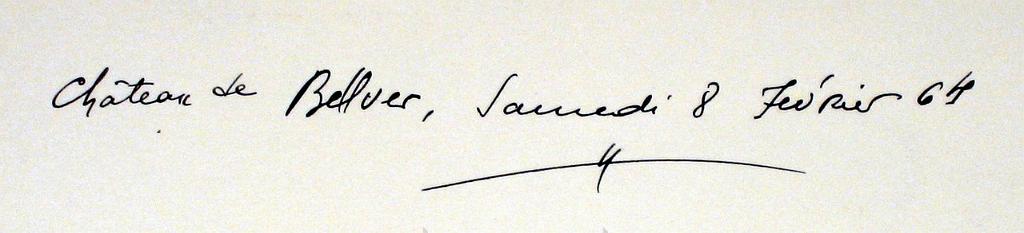 Château de Bellver, Samedi 8 Février 64